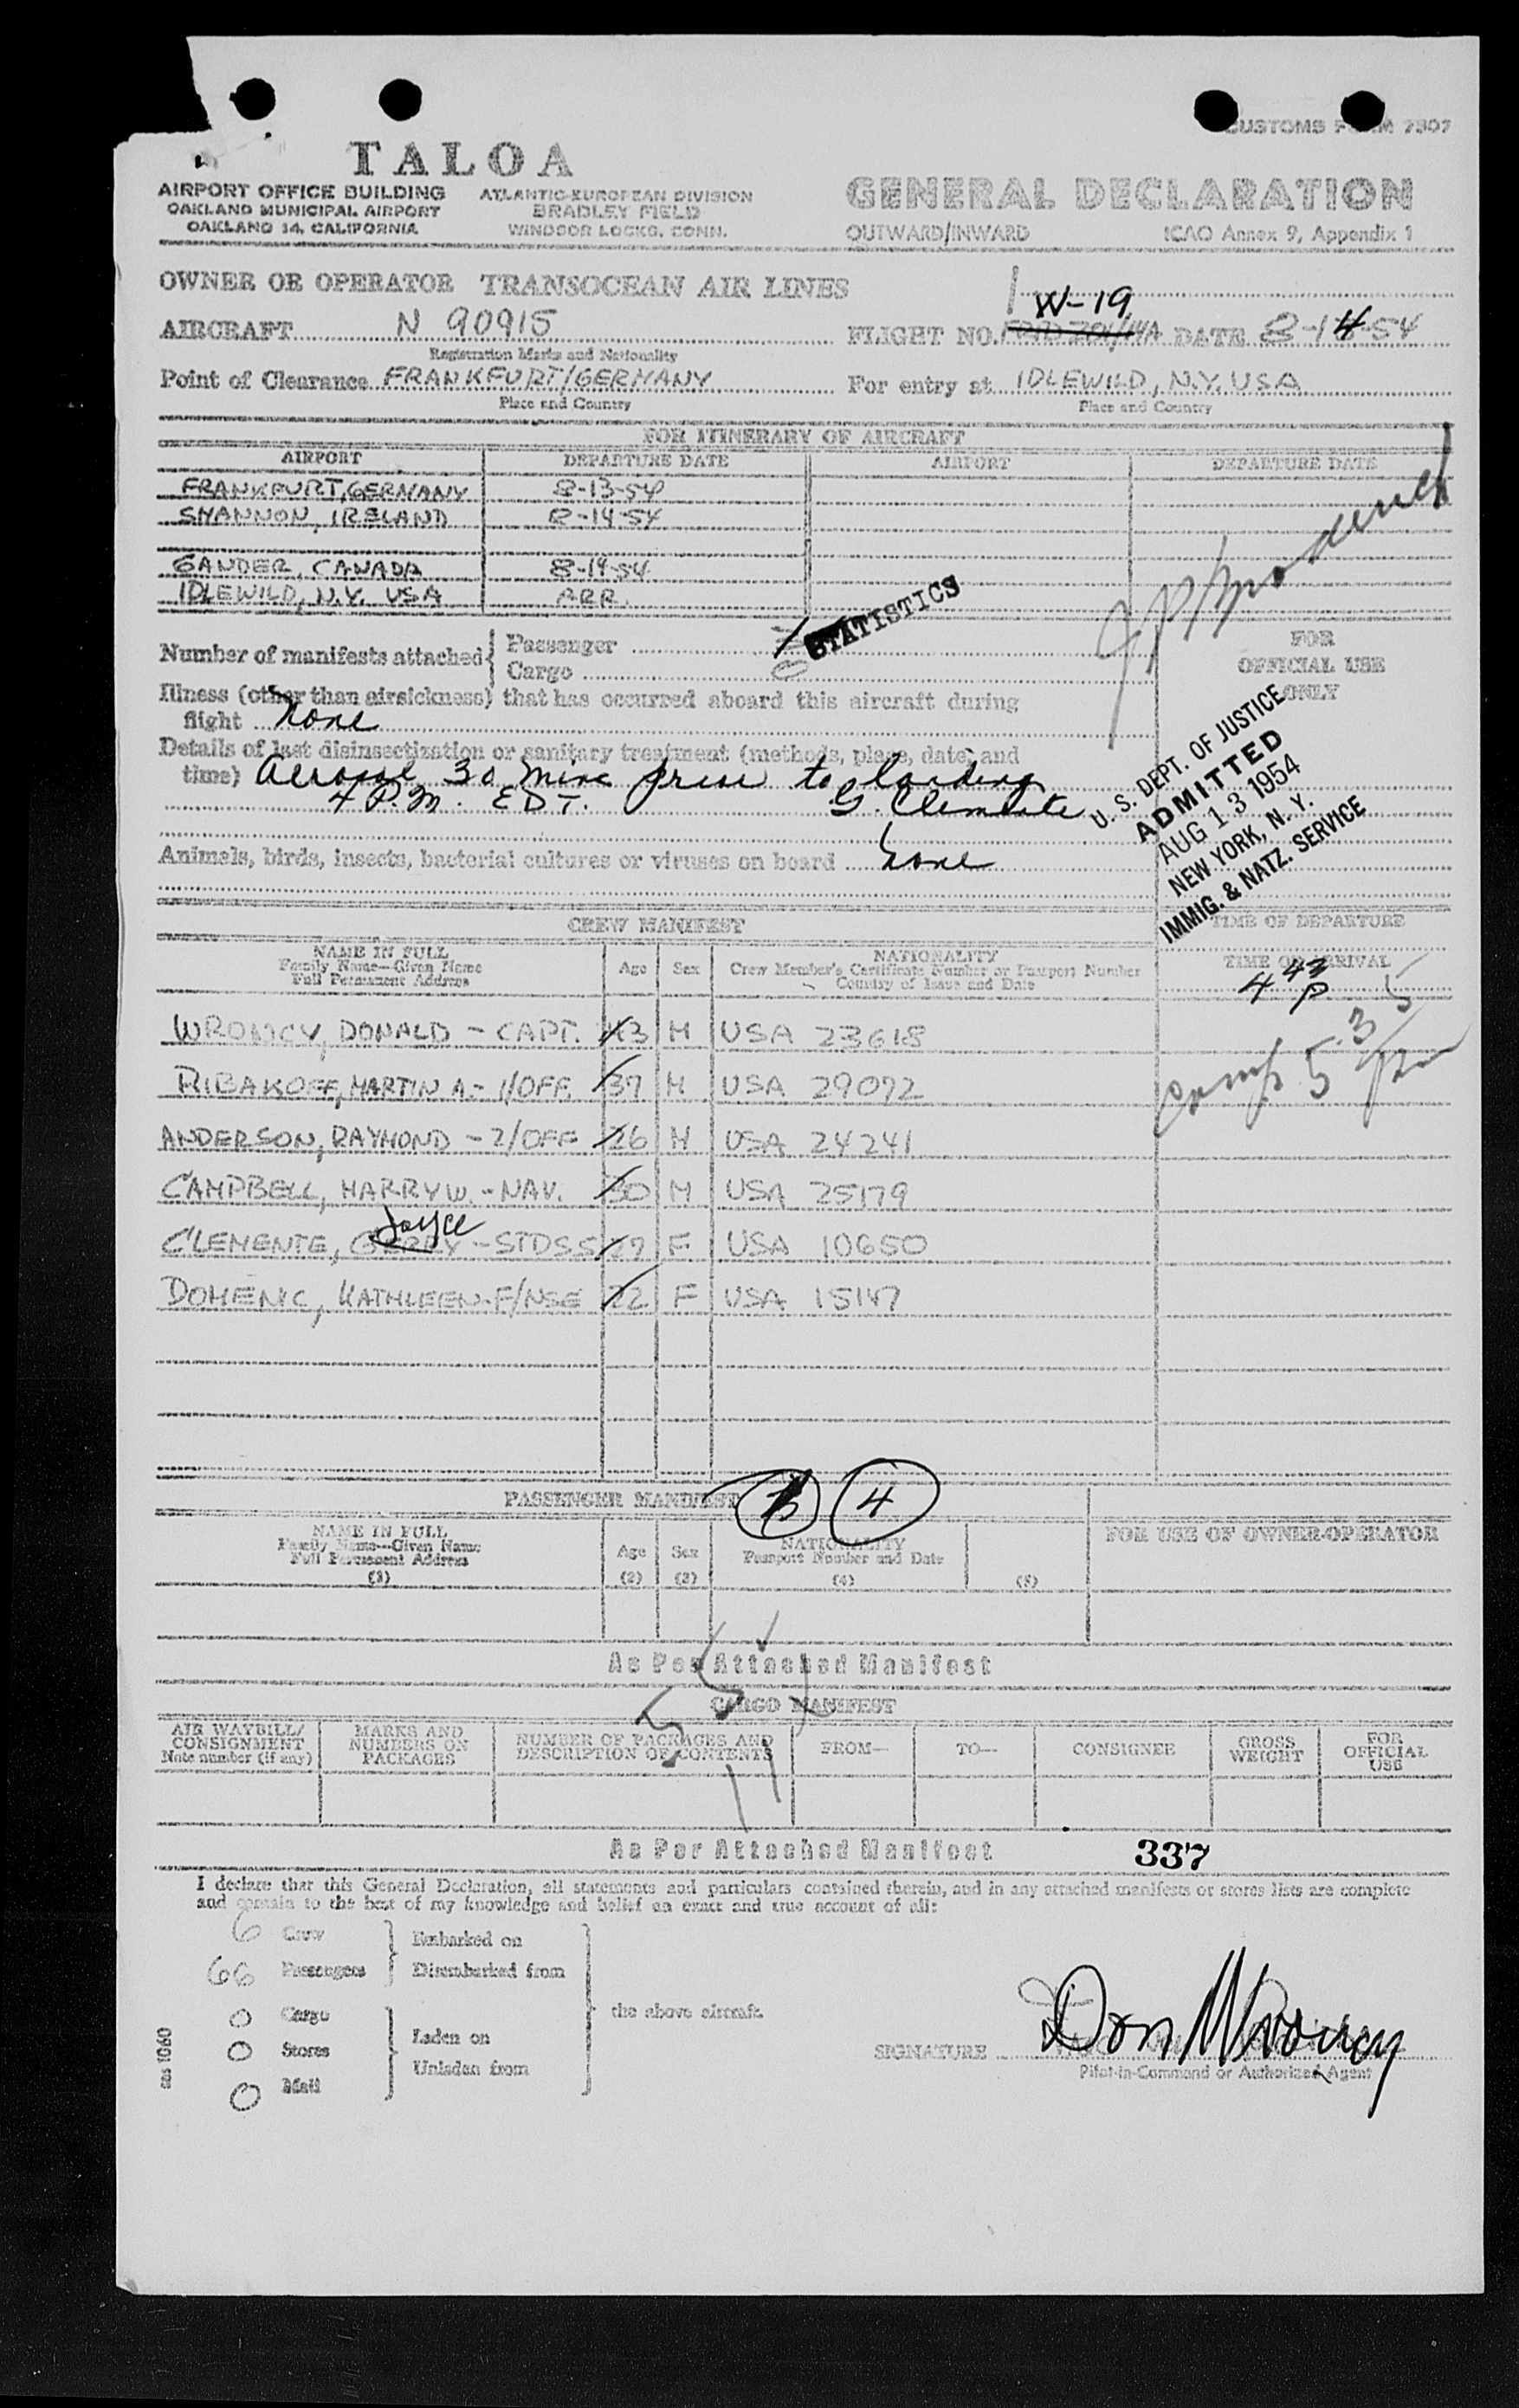 CUSTOMS FORM 7507
TALOA
AIRPORT OFFICE BUILDING
OAKLAND MUNICIPAL AIRPORT
OAKLAND 14, CALIFORNIA
ATLANTIC-EUROPEAN DIVISION
BRADLEY FIELD
WINDSOR LOCKS, CONN.
GENERAL DECLARATION
OUTWARD/INWARD ICAO Annex 9, Appendix 1
OWNER OR OPERATOR TRANSOCEAN AIR LINES
W-19
AIRCRAFT N 90915 FLIGHT NO. DATE 8-14-54
Registration Marks and Nationality
Point of Clearance FRANKFURT/GERMANY For entry at IDLEWILD, N.Y. USA
Place and Country Place and Country
FOR ITINERARY OF AIRCRAFT
AIRPORT DEPARTURE DATE AIRPORT DEPARTURE DATE
FRANKFURT, GERMANY 8-13-54
SHANNON, IRELAND 8-14-54
GANDER, CANADA 8-14-54
IDLEWILD, N.Y. USA ARR.
STATISTICS
Number of manifests attached { Passenger 1
Cargo 0
FOR
OFFICIAL USE
ONLY
Illness (other than airsickness) that has occurred aboard this aircraft during
flight None
Details of last disinsectization or sanitary treatment (methods, place, date, and
time) Aerosol 30 mins prior to landing
4 P.M. EDT. G. Clemente
Animals, birds, insects, bacterial cultures or viruses on board None
U. S. DEPT. OF JUSTICE
ADMITTED
AUG 13 1954
NEW YORK, N. Y.
IMMIG. & NATZ. SERVICE
CREW MANIFEST
TIME OF DEPARTURE
NAME IN FULL
Family Name—Given Name
Full Permanent Address
Age Sex
NATIONALITY
Crew Member's Certificate Number or Passport Number
Country of Issue and Date
TIME OF ARRIVAL
4 43 P
WRONCY, DONALD - CAPT. 43 M USA 23618
RIBAKOFF, MARTIN A. - 1/OFF. 37 M USA 29072
Comp 5 35 PM
ANDERSON, RAYMOND - 2/OFF 26 M USA 24241
CAMPBELL, HARRY W. - NAV. 30 M USA 25179
Joyce
CLEMENTE, GERRY - STDSS 27 F USA 10650
DOMENIC, KATHLEEN - F/NSE 22 F USA 15147
PASSENGER MANIFEST 4
NAME IN FULL
Family Name—Given Name
Full Permanent Address
(1)
Age
(2)
Sex
(3)
NATIONALITY
Passport Number and Date
(4)
(5)
FOR USE OF OWNER-OPERATOR
As Per Attached Manifest
CARGO MANIFEST
AIR WAYBILL/
CONSIGNMENT
Note number (if any)
MARKS AND
NUMBERS ON
PACKAGES
NUMBER OF PACKAGES AND
DESCRIPTION OF CONTENTS
FROM— TO— CONSIGNEE
GROSS
WEIGHT
FOR
OFFICIAL
USE
As Per Attached Manifest 337
I declare that this General Declaration, all statements and particulars contained therein, and in any attached manifests or stores lists are complete
and contain to the best of my knowledge and belief an exact and true account of all:
6 Crew
66 Passengers
Embarked on
Disembarked from
0 Cargo
0 Stores
0 Mail
Laden on
Unladen from
the above aircraft.
SIGNATURE Don Wroncy
Pilot-in-Command or Authorized Agent